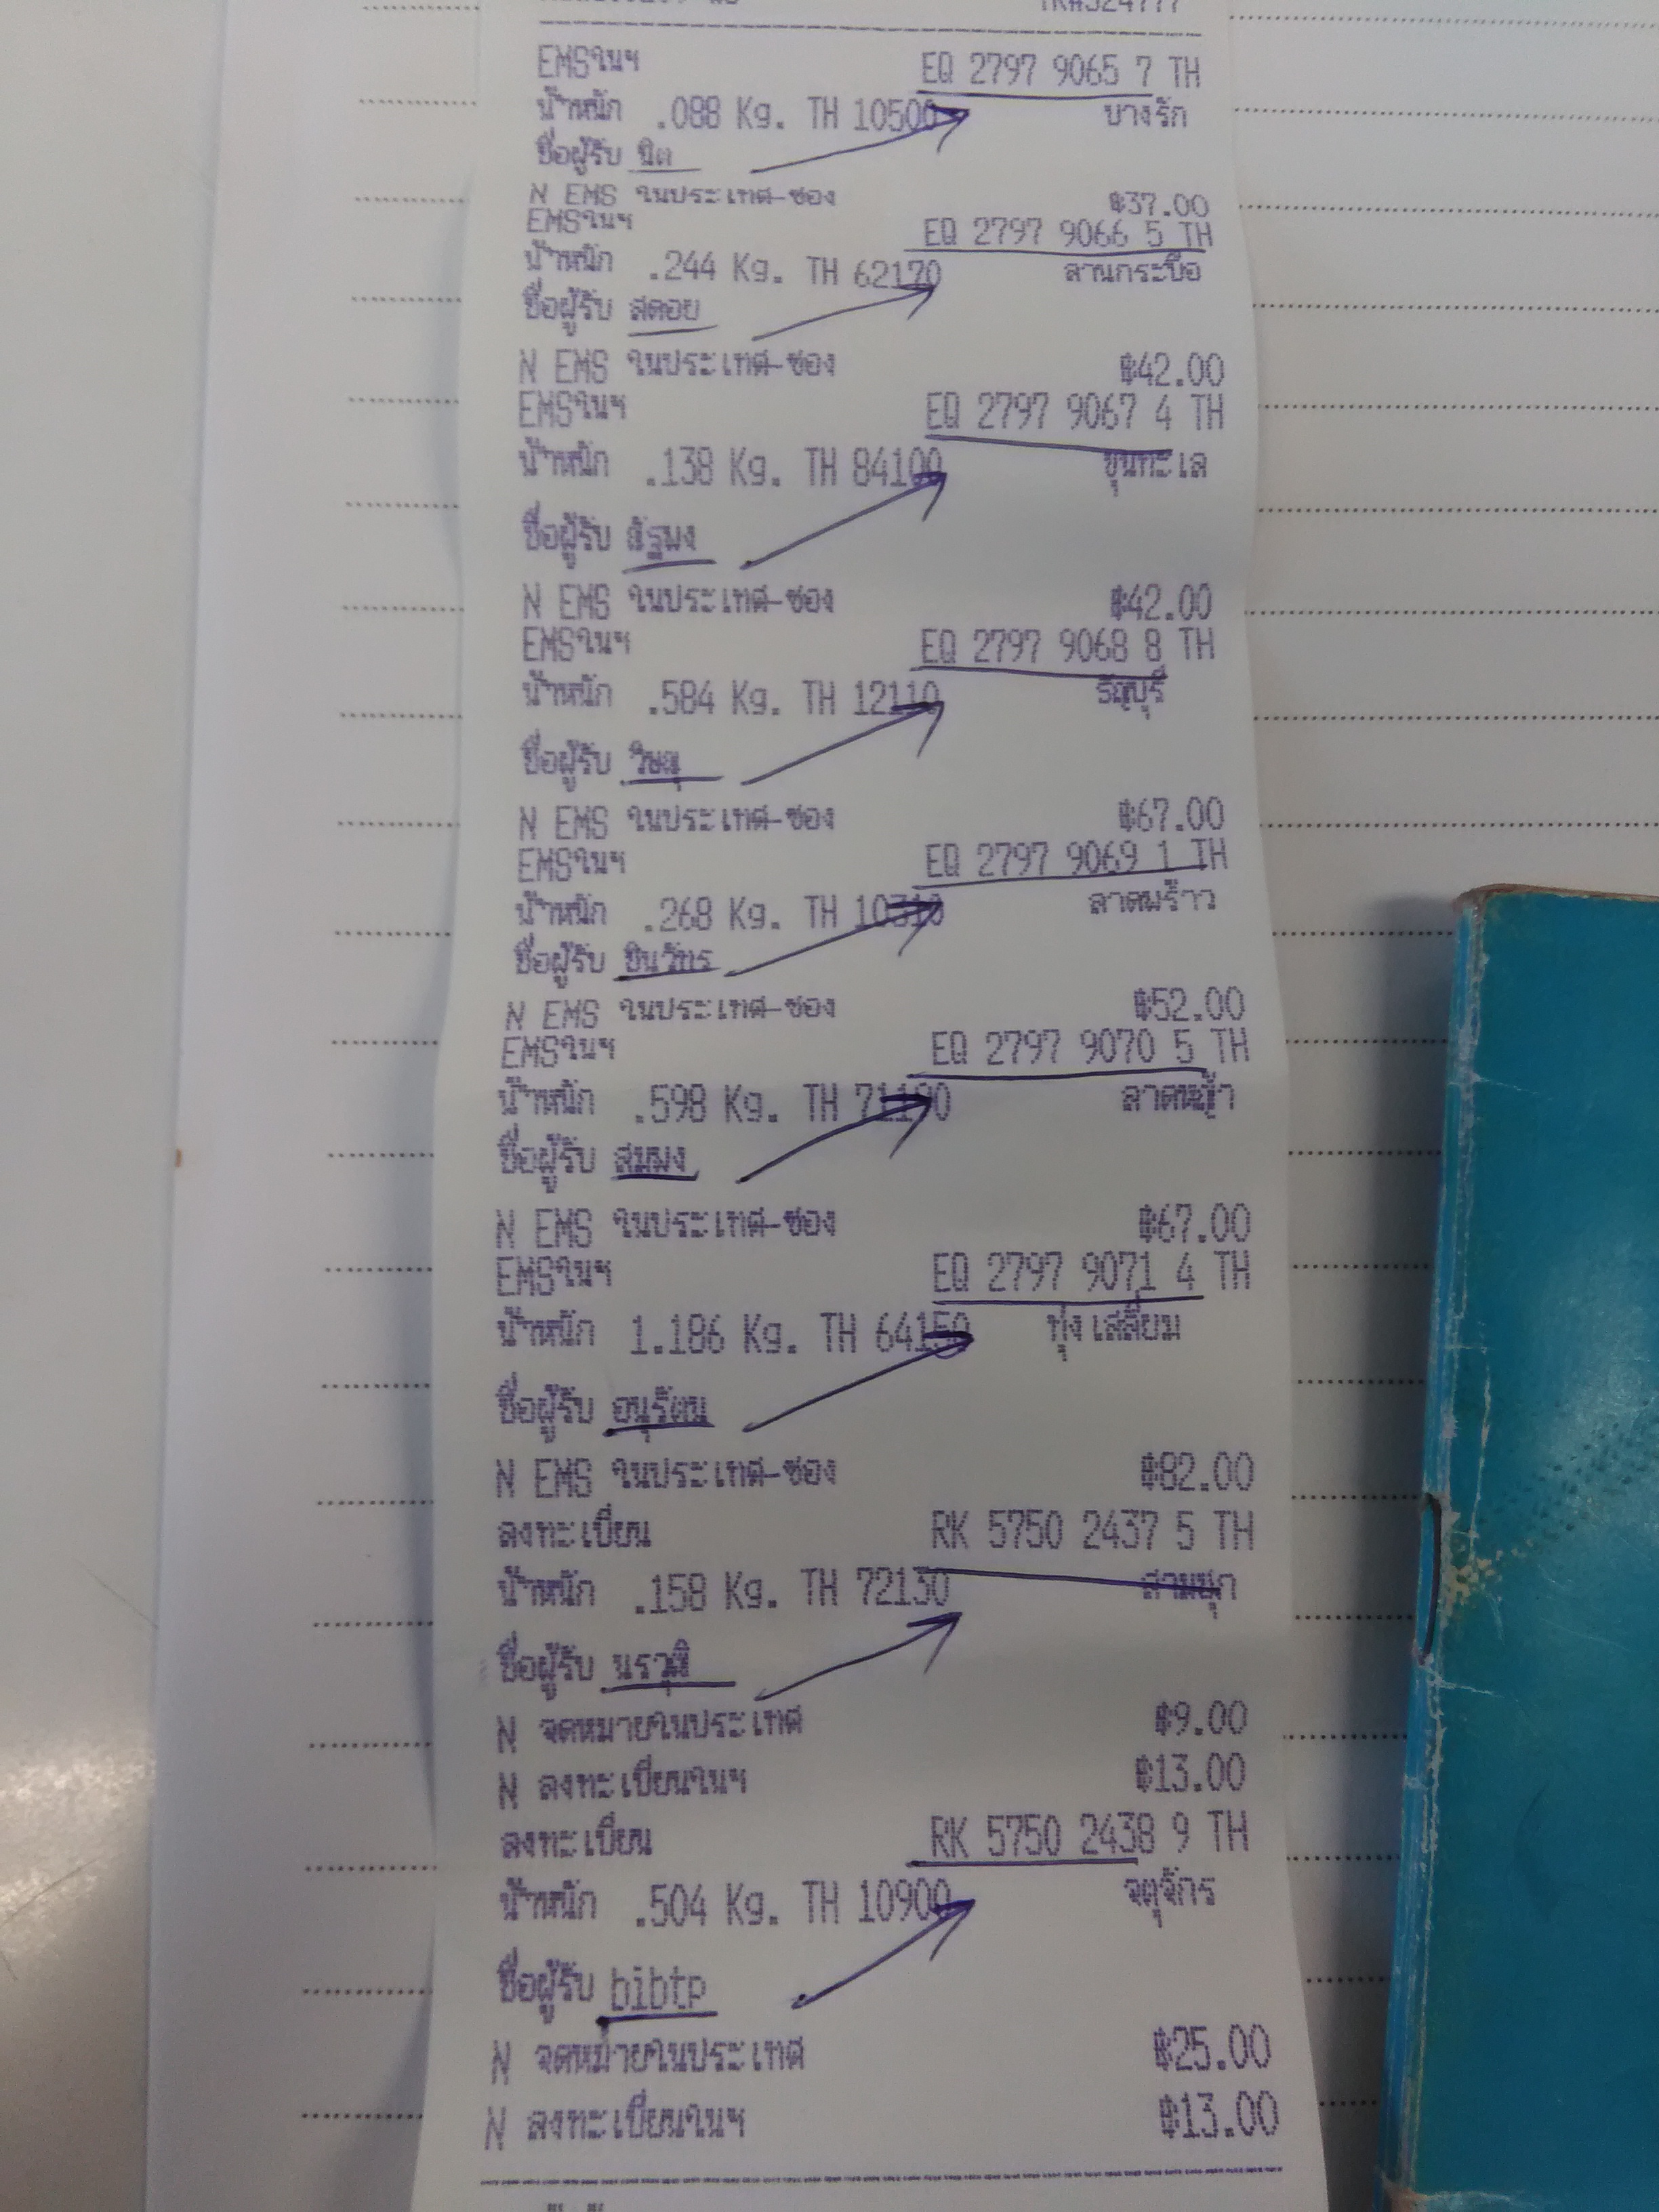 EMSในฯ EQ 2797 9065 7 TH
น้ำหนัก .088 Kg. TH 10500 บางรัก
ชื่อผู้รับ
N EMS ในประเทศ-ซอง ฿37.00
EMSในฯ EQ 2797 9066 5 TH
น้ำหนัก .244 Kg. TH 62170 ลานกระบือ
ชื่อผู้รับ สดอย
N EMS ในประเทศ-ซอง ฿42.00
EMSในฯ EQ 2797 9067 4 TH
น้ำหนัก .138 Kg. TH 84100 ขุนทะเล
ชื่อผู้รับ
N EMS ในประเทศ-ซอง ฿42.00
EMSในฯ EQ 2797 9068 8 TH
น้ำหนัก .584 Kg. TH 12110 ธัญบุรี
ชื่อผู้รับ วิษณุ
N EMS ในประเทศ-ซอง ฿67.00
EMSในฯ EQ 2797 9069 1 TH
น้ำหนัก .268 Kg. TH 10310 ลาดพร้าว
ชื่อผู้รับ
N EMS ในประเทศ-ซอง ฿52.00
EMSในฯ EQ 2797 9070 5 TH
น้ำหนัก .598 Kg. TH 71190 ลาดหญ้า
ชื่อผู้รับ
N EMS ในประเทศ-ซอง ฿67.00
EMSในฯ EQ 2797 9071 4 TH
น้ำหนัก 1.186 Kg. TH 64150 ทุ่งเสลี่ยม
ชื่อผู้รับ อนุรัตน
N EMS ในประเทศ-ซอง ฿82.00
ลงทะเบียน RK 5750 2437 5 TH
น้ำหนัก .158 Kg. TH 72130 สามชุก
ชื่อผู้รับ นราวุฒิ
N จดหมายในประเทศ ฿9.00
N ลงทะเบียนในฯ ฿13.00
ลงทะเบียน RK 5750 2438 9 TH
น้ำหนัก .504 Kg. TH 10900 จตุจักร
ชื่อผู้รับ bibtp
N จดหมายในประเทศ ฿25.00
N ลงทะเบียนในฯ ฿13.00